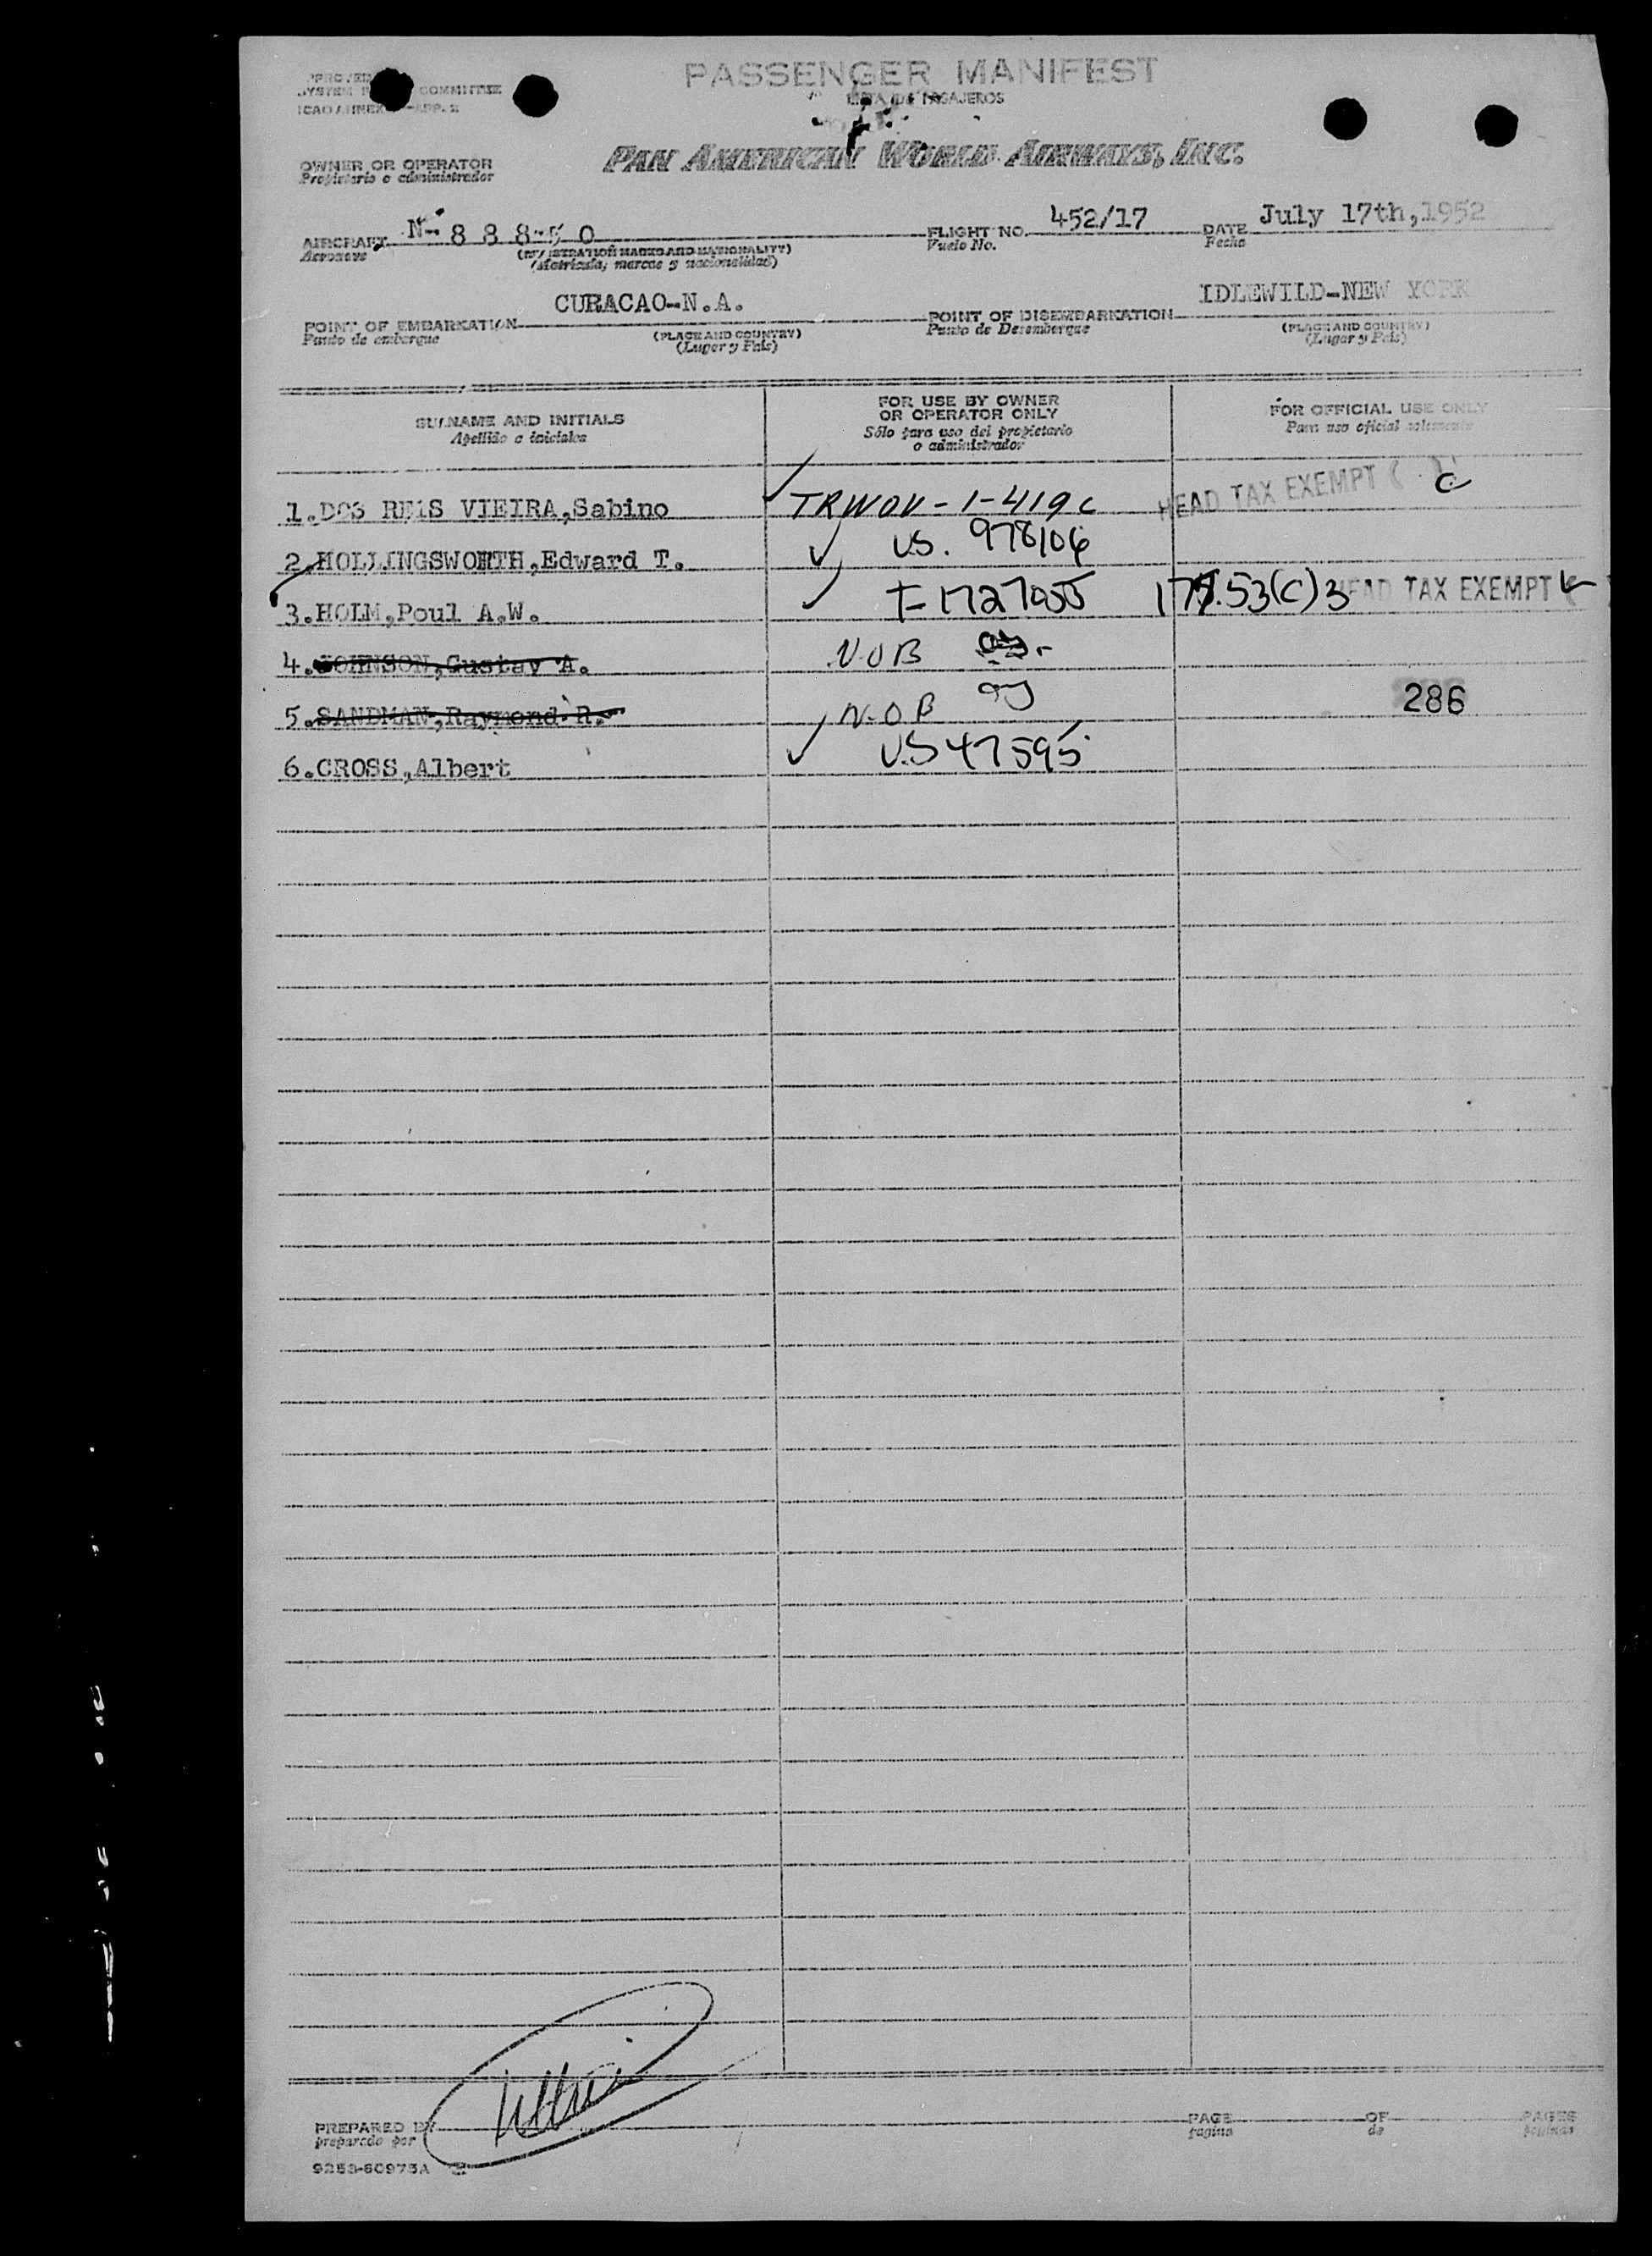 PASSENGER MANIFEST
LISTA DE PASAJEROS
COMMITTEE
ICAO ANNEX -APP. 2
OWNER OR OPERATOR
Propietario o administrador
PAN AMERICAN WORLD AIRWAYS, INC.
AIRCRAFT N-888-50 FLIGHT NO. 452/17 DATE July 17th,1952
Aeronave (REGISTRATION MARKS AND NATIONALITY) Vuelo No. Fecha
(Matricula, marcas y nacionalidad)
POINT OF EMBARKATION CURACAO-N.A. POINT OF DISEMBARKATION IDLEWILD-NEW YORK
Punto de embarque (PLACE AND COUNTRY) Punto de Desembarque (PLACE AND COUNTRY)
(Lugar y País) (Lugar y País)
SURNAME AND INITIALS FOR USE BY OWNER OR OPERATOR ONLY FOR OFFICIAL USE ONLY
Apellido e iniciales Sólo para uso del propietario o administrador Para uso oficial solamente
1.DOS REIS VIEIRA,Sabino TRWOV-1-419c HEAD TAX EXEMPT ( C
2.HOLLINGSWORTH,Edward T. U.S. 978106
3.HOLM,Poul A.W. I-1727055 175.53(C)3 HEAD TAX EXEMPT (
4.JOHNSON,Gustav A. N.O.B
5.SANDMAN,Raymond R. N.O.B 286
6.CROSS,Albert U.S 47595
PREPARED BY PAGE OF PAGES
preparado por pagina de paginas
9253-60975A